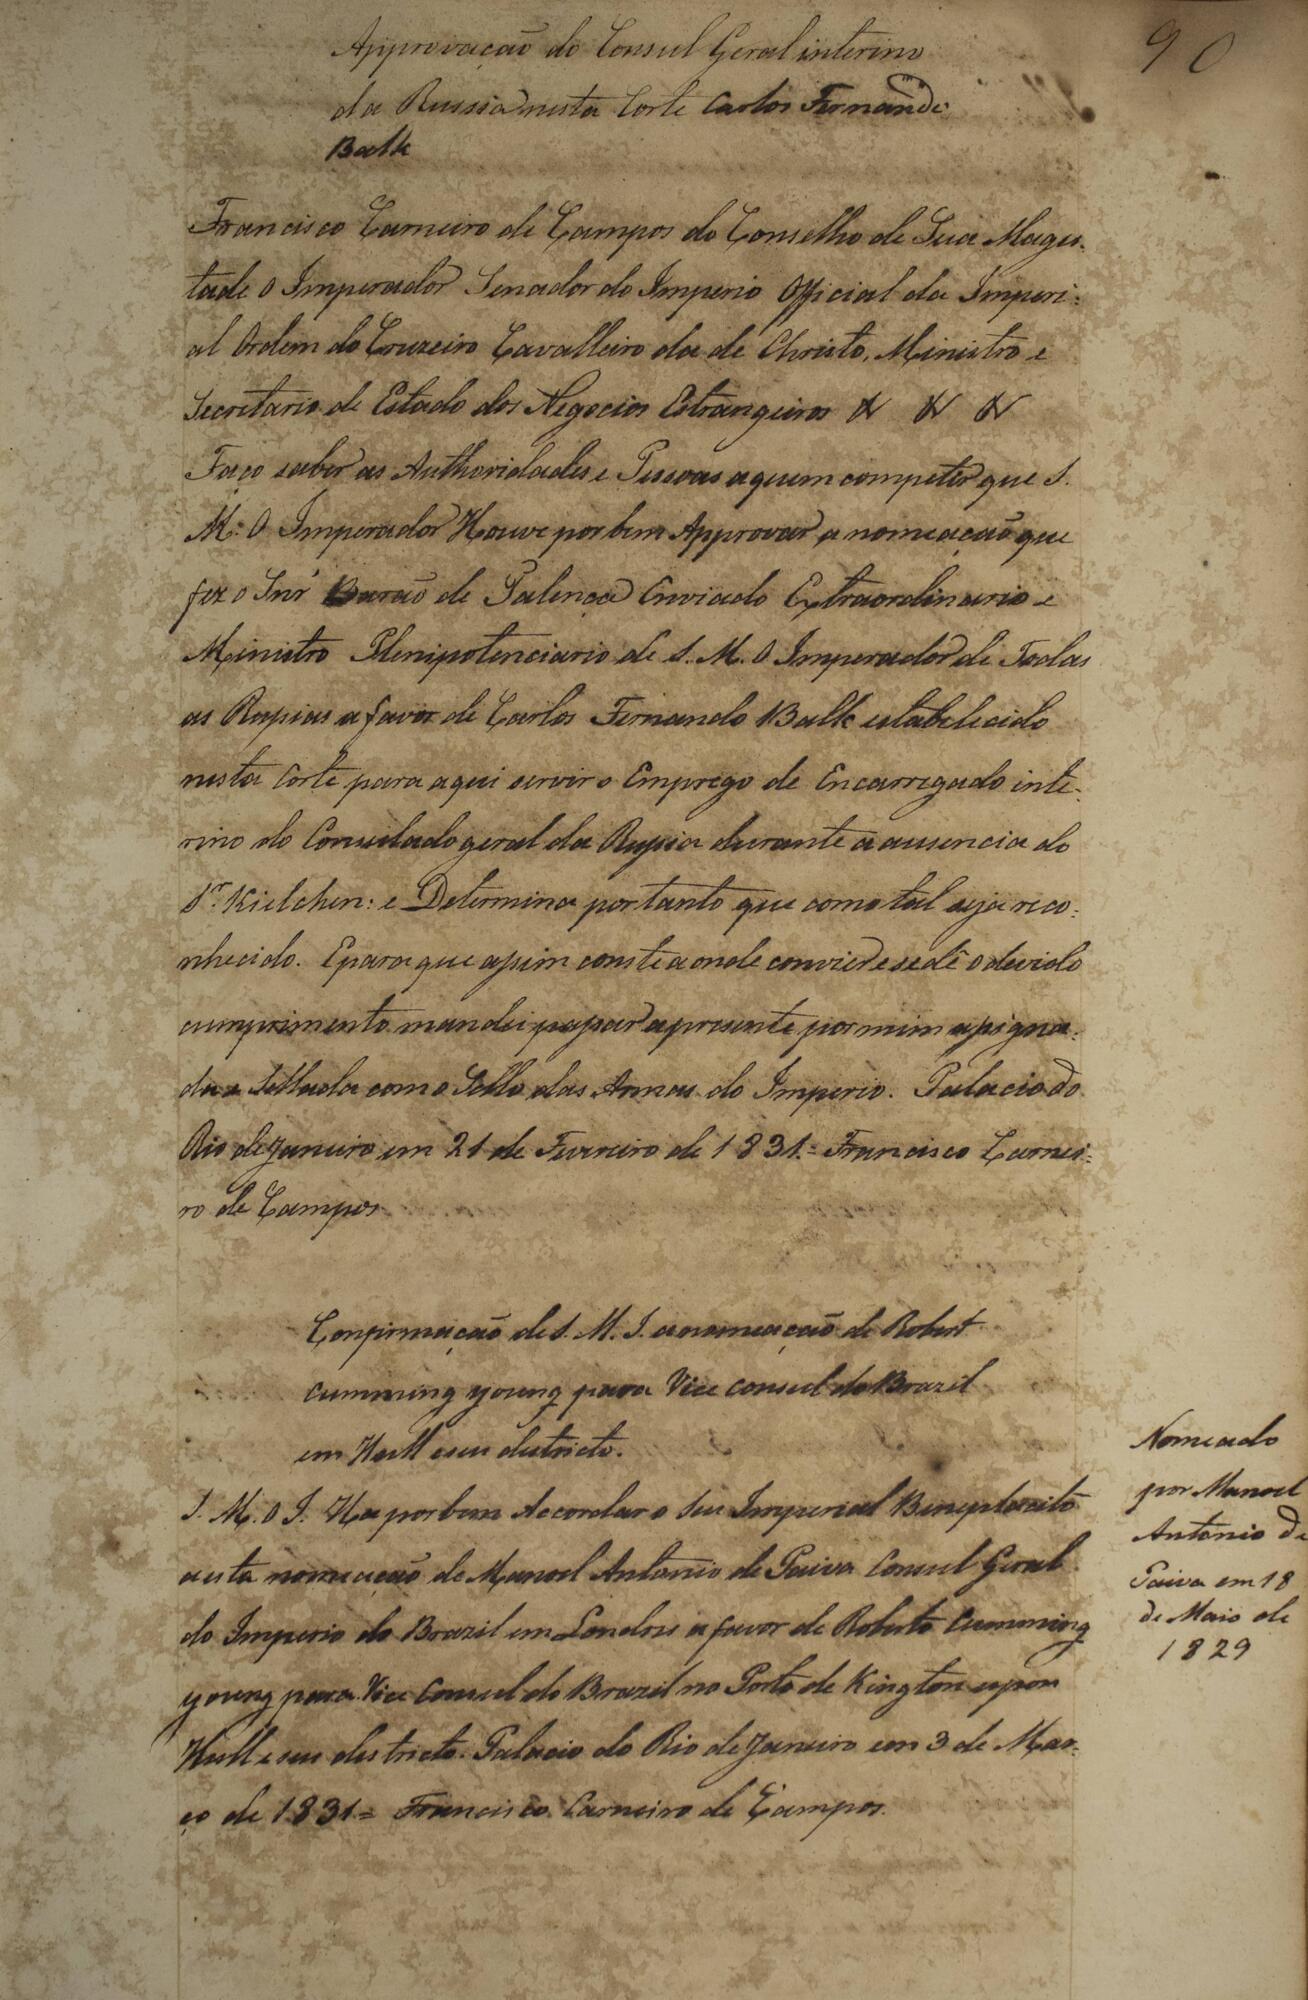 90
Approvação do Consul Geral interino
da Russia nesta Corte Carlos Fernando
Balk
Francisco Carneiro de Campos do Conselho de Sua Mages-
tade o Imperador Senador do Imperio Official da Imperi-
al Ordem do Cruzeiro Cavalleiro da de Christo, Ministro e
Secretario de Estado dos Negocios Estrangeiros
Faço saber as Authoridades e Pessoas a quem competir que S.
M. O Imperador Houve por bem Approvar a nomeação que
fez o Snr Barão de Palença Enviado Extraordinario e
Ministro Plenipotenciario de S. M. O Imperador de Todas
as Russias a favor de Carlos Fernando Balk estabelecido
nesta Corte para aqui servir o Emprego de Encarregado inte-
rino do Consulado geral da Russia durante a ausencia do
Sr. Kielchen: e Determina portanto que como tal seja reco-
nhecido. E para que assim conste aonde convier e se dê o devido
cumprimento mandei passar a presente por mim assigna-
da e Sellada com o Sello das Armas do Imperio. Palacio do
Rio de Janeiro em 21 de Fevereiro de 1831.= Francisco Carnei-
ro de Campos
Confirmação de S. M. I. a nomeação de Robert
Cumming young para Vice Consul do Brazil
em Hull e seu districto.
S. M. O I. Ha por bem Accordar o Seu Imperial Beneplacito
a esta nomeação de Manoel Antonio de Paiva Consul Geral
do Imperio do Brazil em Londres a favor de Roberto Cumming
young para Vice Consul do Brazil no Porto de Kington upon
Hull e seu districto. Palacio do Rio de Janeiro em 3 de Mar-
ço de 1831= Francisco Carneiro de Campos.
Nomeado
por Manoel
Antonio de
Paiva em 18
de Maio de
1829